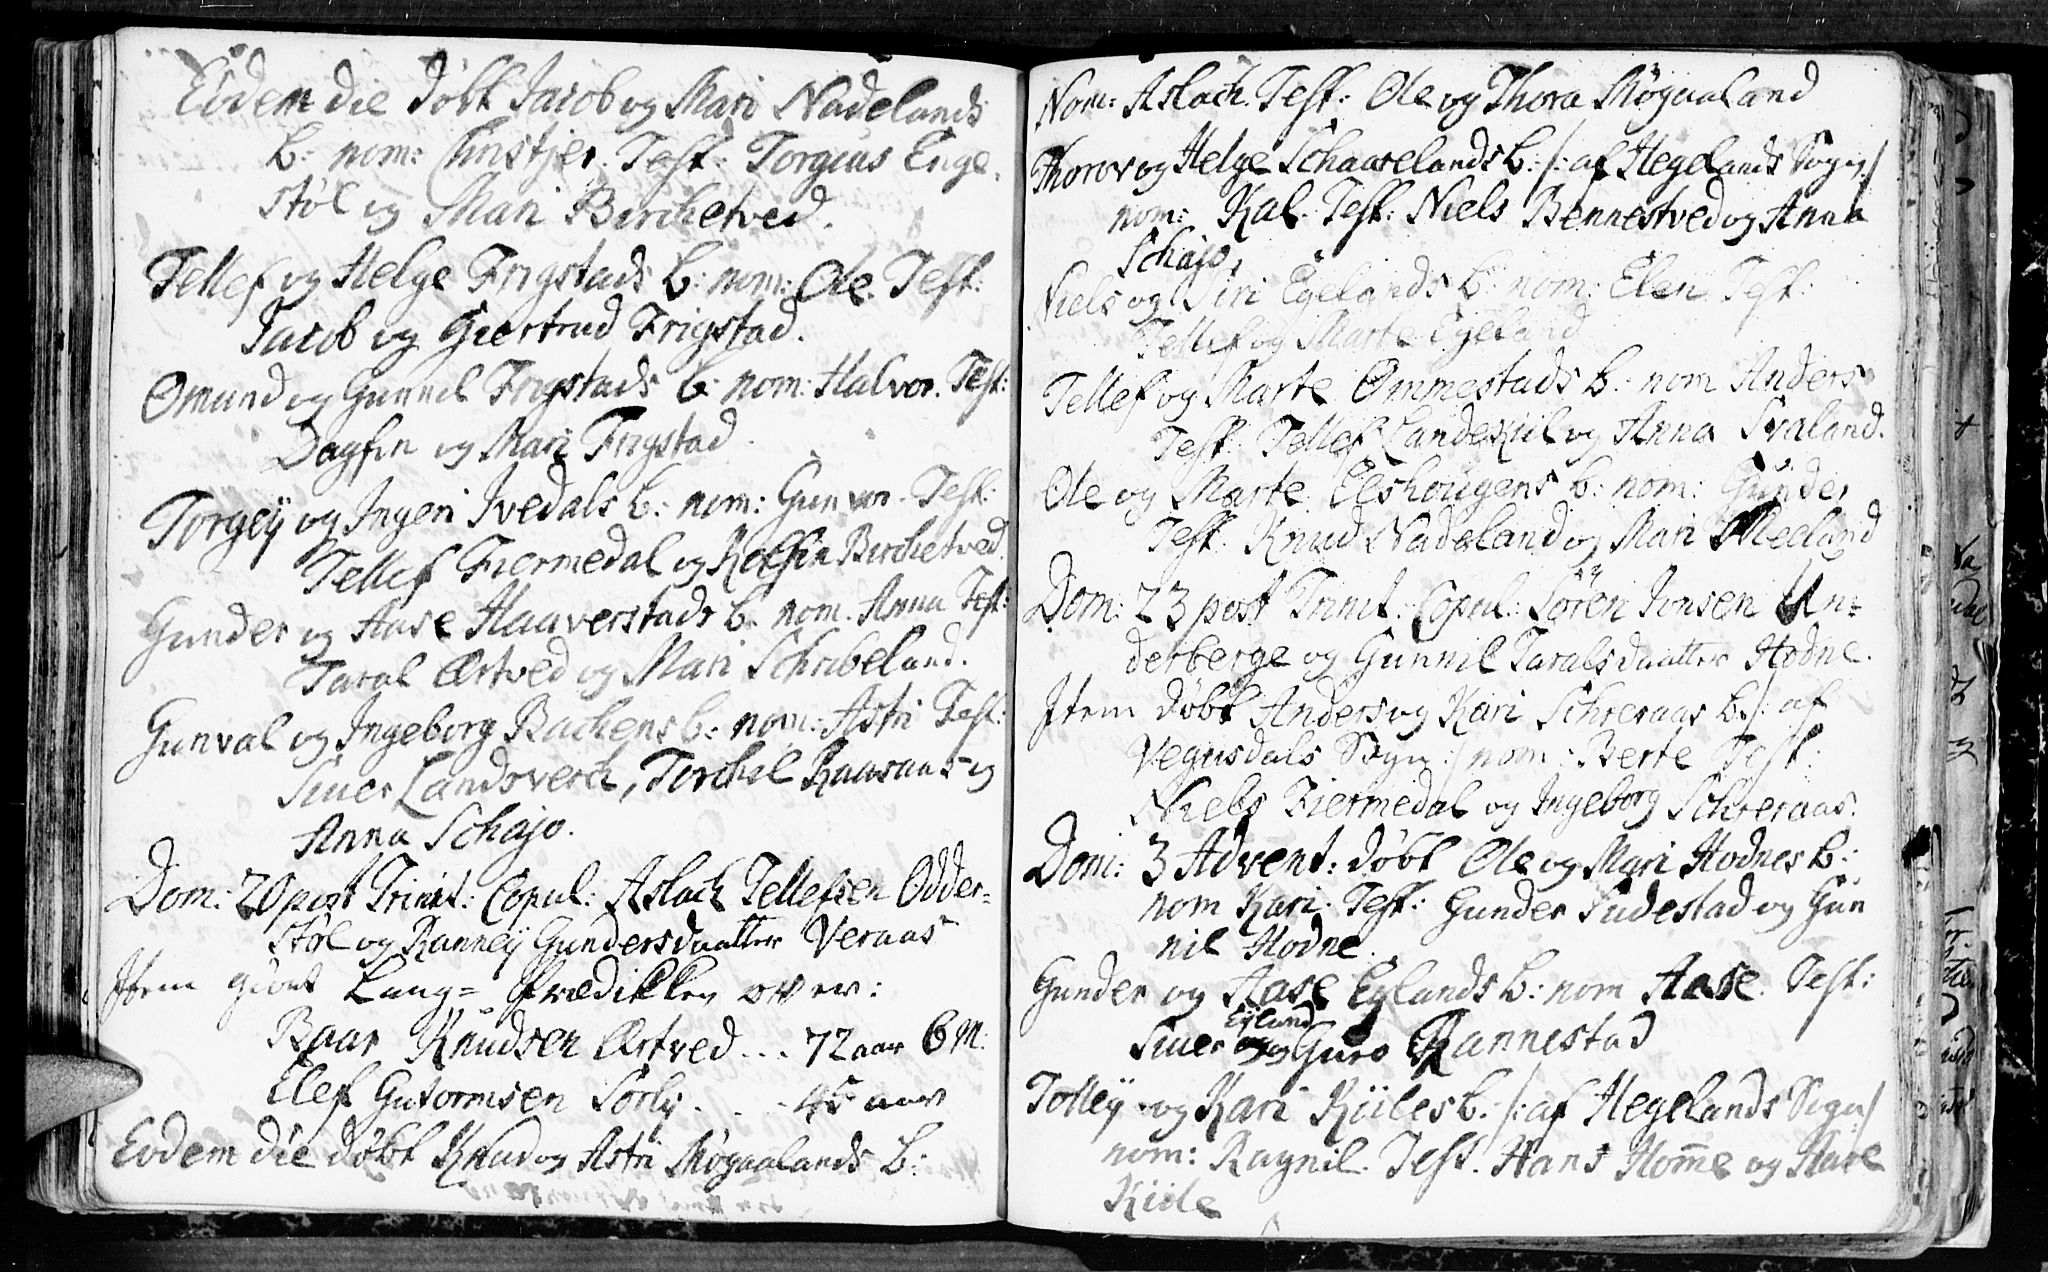 Eodem die döbt Jacob og Mari Nadelands
b: nom: Christjer. Test: Torgius Enge-
støl og Mari Birchetved.
Tellef og Helge Frigstads b: nom: Ole. Test:
Jacob og Giertrud Frigstad.
Omund og Gunnil Frigstads b: nom: Halvor. Test:
Dagfin og Mari Frigstad.
Torgeÿ og Ingeri Ivedals b: nom: Gunvor. Test:
Tellef Fiermedal og Birchetved.
Gunder og Aase Haaverstads b: nom. Anna Test:
Taral Ørtved og Mari Schribeland.
Gunval og Ingeborg Bachens b: nom: Astri Test:
Siuer Landsverch, Torchil Raasaas og
Anna Schajo.
Dom: 20 post Trinit: Copul: Aslach Tellefsen Odder-
støl og Ranneÿ Gundersdaatter Veraas
Item giort Lang= Prædikken over:
Baar Knudsen Ørtved ... 72 aar 6 M:
Elef Gutormsen Sorly . . . 45 aar
Eodem die döbt Knud og Astri Møgaalands b:
Nom: Aslach. Test: Ole og Thora Møgaaland
Thorov og Helge Schaarelands b: /: af Hegelands Sogn /
nom: Kal. Test: Niels Bennestved og Anna
Schajo.
Niels og Siri Egelands b: nom: Elen Test:
Tellef og Marte Egeland
Tellef og Marte Ommestads b: nom Anders
Test: Tellef Landekiil og Anna Svaland.
Ole og Marte Eeshougens b: nom: Gunder
Test: Knud Nadeland og Mari Meeland
Dom: 23 post Trinit: Copul: Søren Jonsen Un=
derberge og Gunnil Taralsdaatter Hodne.
Item döbt Anders og Kari Schreraas b /: af
Vegusdals Sogn :/ nom: Berte Test:
Niels Fiermedal og Ingeborg Schreraas.
Dom: 3 Advent: döbt Ole og Mari Hodnes b:
nom Kari. Test: Gunder Sudestad og Gun
nil Hodne.
Gunder og Aase Eylands b: nom Aase. Test:
Siuer Eyland og Guro Rannestad
Tolleÿ og Kari Kiiles b. /: af Hegelands Sogn /
nom: Ragnil. Test. Hans Homme og Aase
Kiile